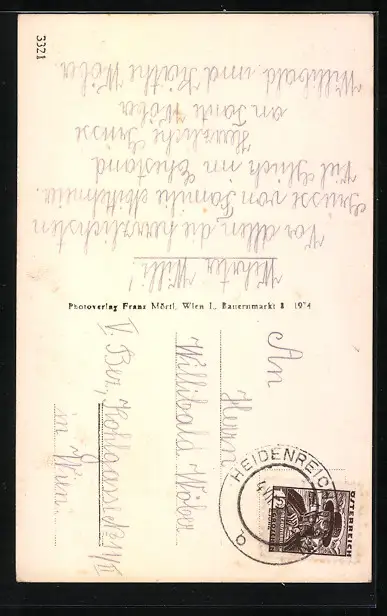 3321
Werter Willi!
Vor allem die herzlichsten
Grüsse von Familie
Viel Glück im Ehestand
Herzliche Grüsse
an Tante Wöber
Willibald und Käthe Wöber.
Photoverlag Franz Mörtl, Wien I., Bauernmarkt 3 1974
An
Herrn
Willibald Wöber
V. Bez. Hohlgasse
in Wien.
HEIDENREICH
ÖSTERREICH